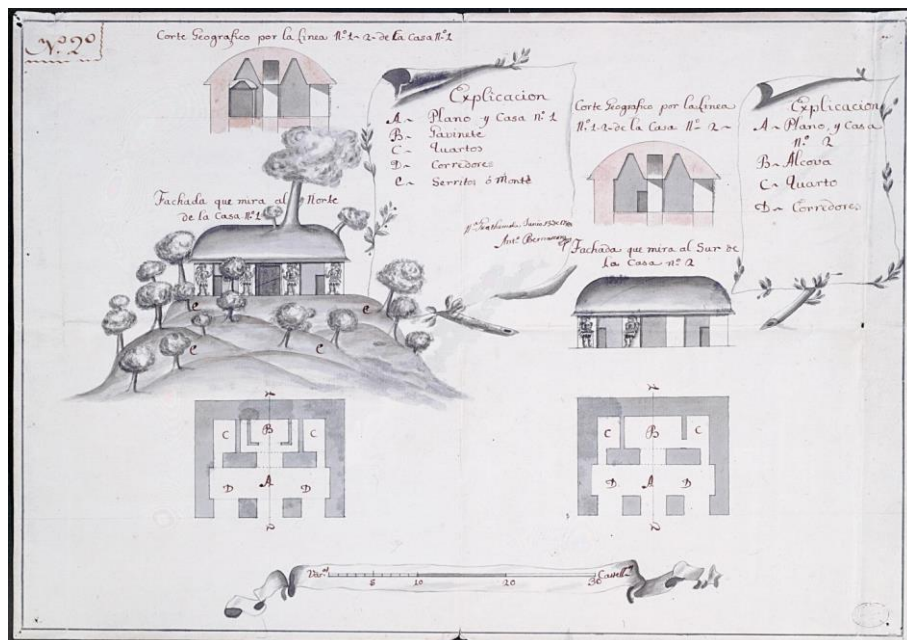 N.º 2º
Corte Geografico por la linea Nº 1~2~ de la Casa Nº 1
Explicacion
A~ Plano, y Casa nº 1
B~ Gavinete
C~ Quartos
D~ Corredores
C~ Serritos ó Monte
Fachada que mira al Norte
de la Casa Nº 1
C
C
C
C
Corte Geografico por la Linea
Nº 1~2~ de la Casa Nº 2~
Explicacion
A~ Plano, y Casa
Nº 2
B~ Alcova
C~ Quarto
D~ Corredores
Junio
Antº
Fachada que mira al Sur de
la Casa nº 2
C
B
C
D
A
D
2
C
B
C
D
A
D
2
Varas
5
10
20
30
Castellas